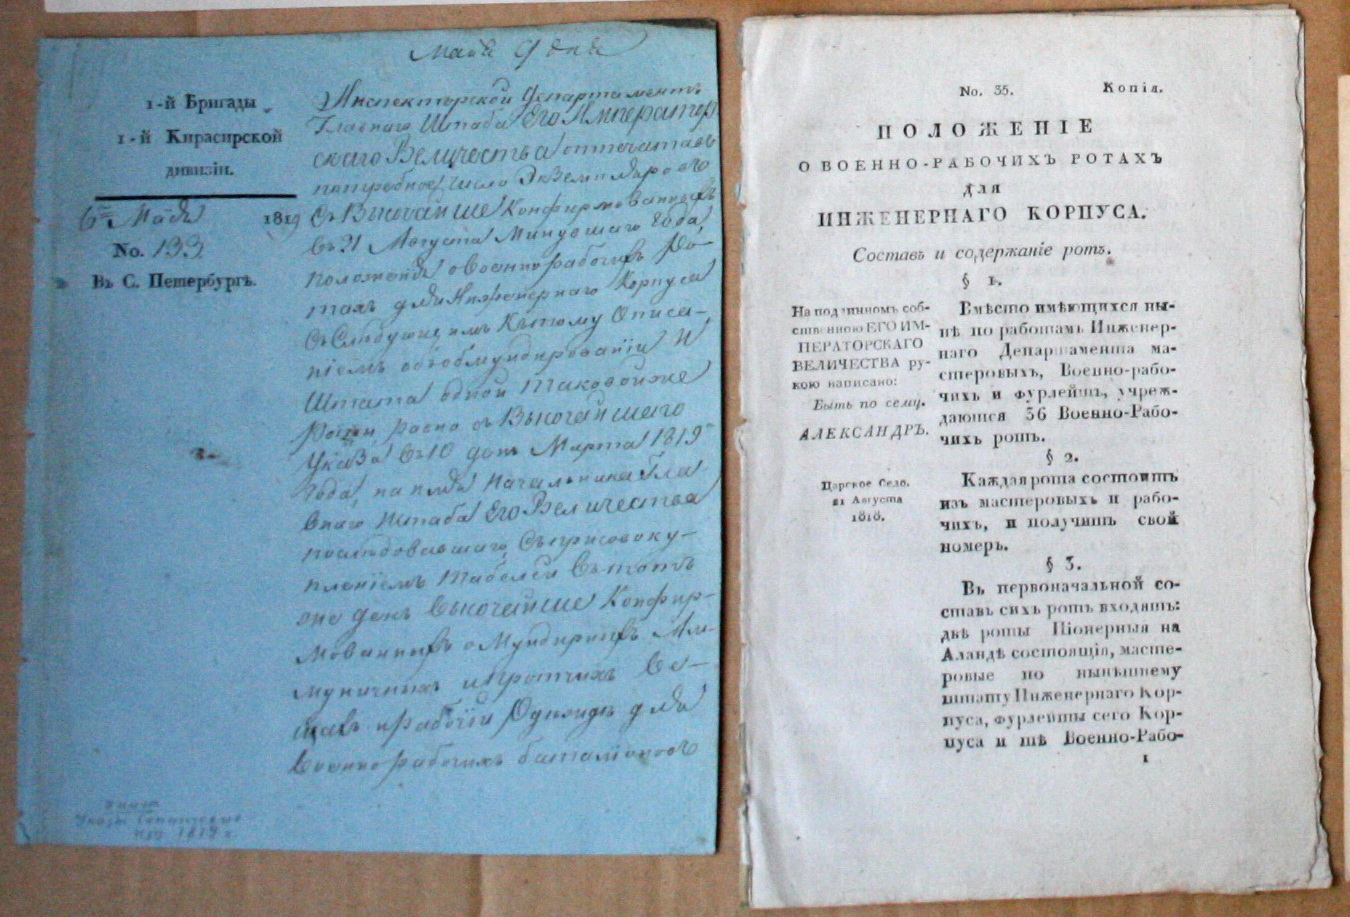 Маія 9 дня
1-й Бригады
1-й Кирасирской
дивизіи.
6го Маія 1819
No. 133
Въ С. Петербургъ.
Инспекторской Департаментъ
Главнаго Штаба Его Император
скаго Величества отпечатавъ
потребное число Экземпляровъ
Съ Высочайше Конфирмованнаго
въ 21 Августа Минувшаго Года
Положенія о Военно рабочихъ Ро-
тахъ для Инженернаго Корпуса
Съ Слѣдующимъ Къ тому Описа-
ніемъ объ обмундированіи И
Штата одной таковой же
Роты равно съ Высочайшаго
Указа въ 10 день Марта 1819
Года, на имя Начальника Гла
внаго Штаба Его Величества
послѣдовавшаго, Съ присовоку-
пленіемъ табелей въ тотъ
же день Высочайше Конфир-
мованныхъ о Мундирныхъ Ам-
муничныхъ и протчихъ Ве-
щахъ и рабочій Одежидѣ для
Военно рабочихъ баталіоновъ
Указы
1819 г.
No. 35. Копія.
ПОЛОЖЕНІЕ
О ВОЕННО-РАБОЧИХЪ РОТАХЪ
ДЛЯ
ИНЖЕНЕРНАГО КОРПУСА.
Составъ и содержаніе ротъ.
§ 1.
На подлинномъ соб-
ственною ЕГО ИМ-
ПЕРАТОРСКАГО
ВЕЛИЧЕСТВА ру-
кою написано:
Быть по сему.
АЛЕКСАНДРЪ.
Царское Село.
21 Августа
1818.
Вмѣсто имѣющихся ны-
нѣ по работамъ Инженер-
наго Департамента ма-
стеровыхъ, Военно-рабо-
чихъ и фурлейтъ, учреж-
даются 36 Военно-Рабо-
чихъ ротъ.
§ 2.
Каждая рота состоитъ
изъ мастеровыхъ и рабо-
чихъ, и получитъ свой
номеръ.
§ 3.
Въ первоначальной со-
ставъ сихъ ротъ входятъ:
двѣ роты Піонерныя на
Аландѣ состоящія, масте-
ровые по нынѣшнему
штату Инженернаго Кор-
пуса, фурлейты сего Кор-
пуса и тѣ Военно-Рабо-
1